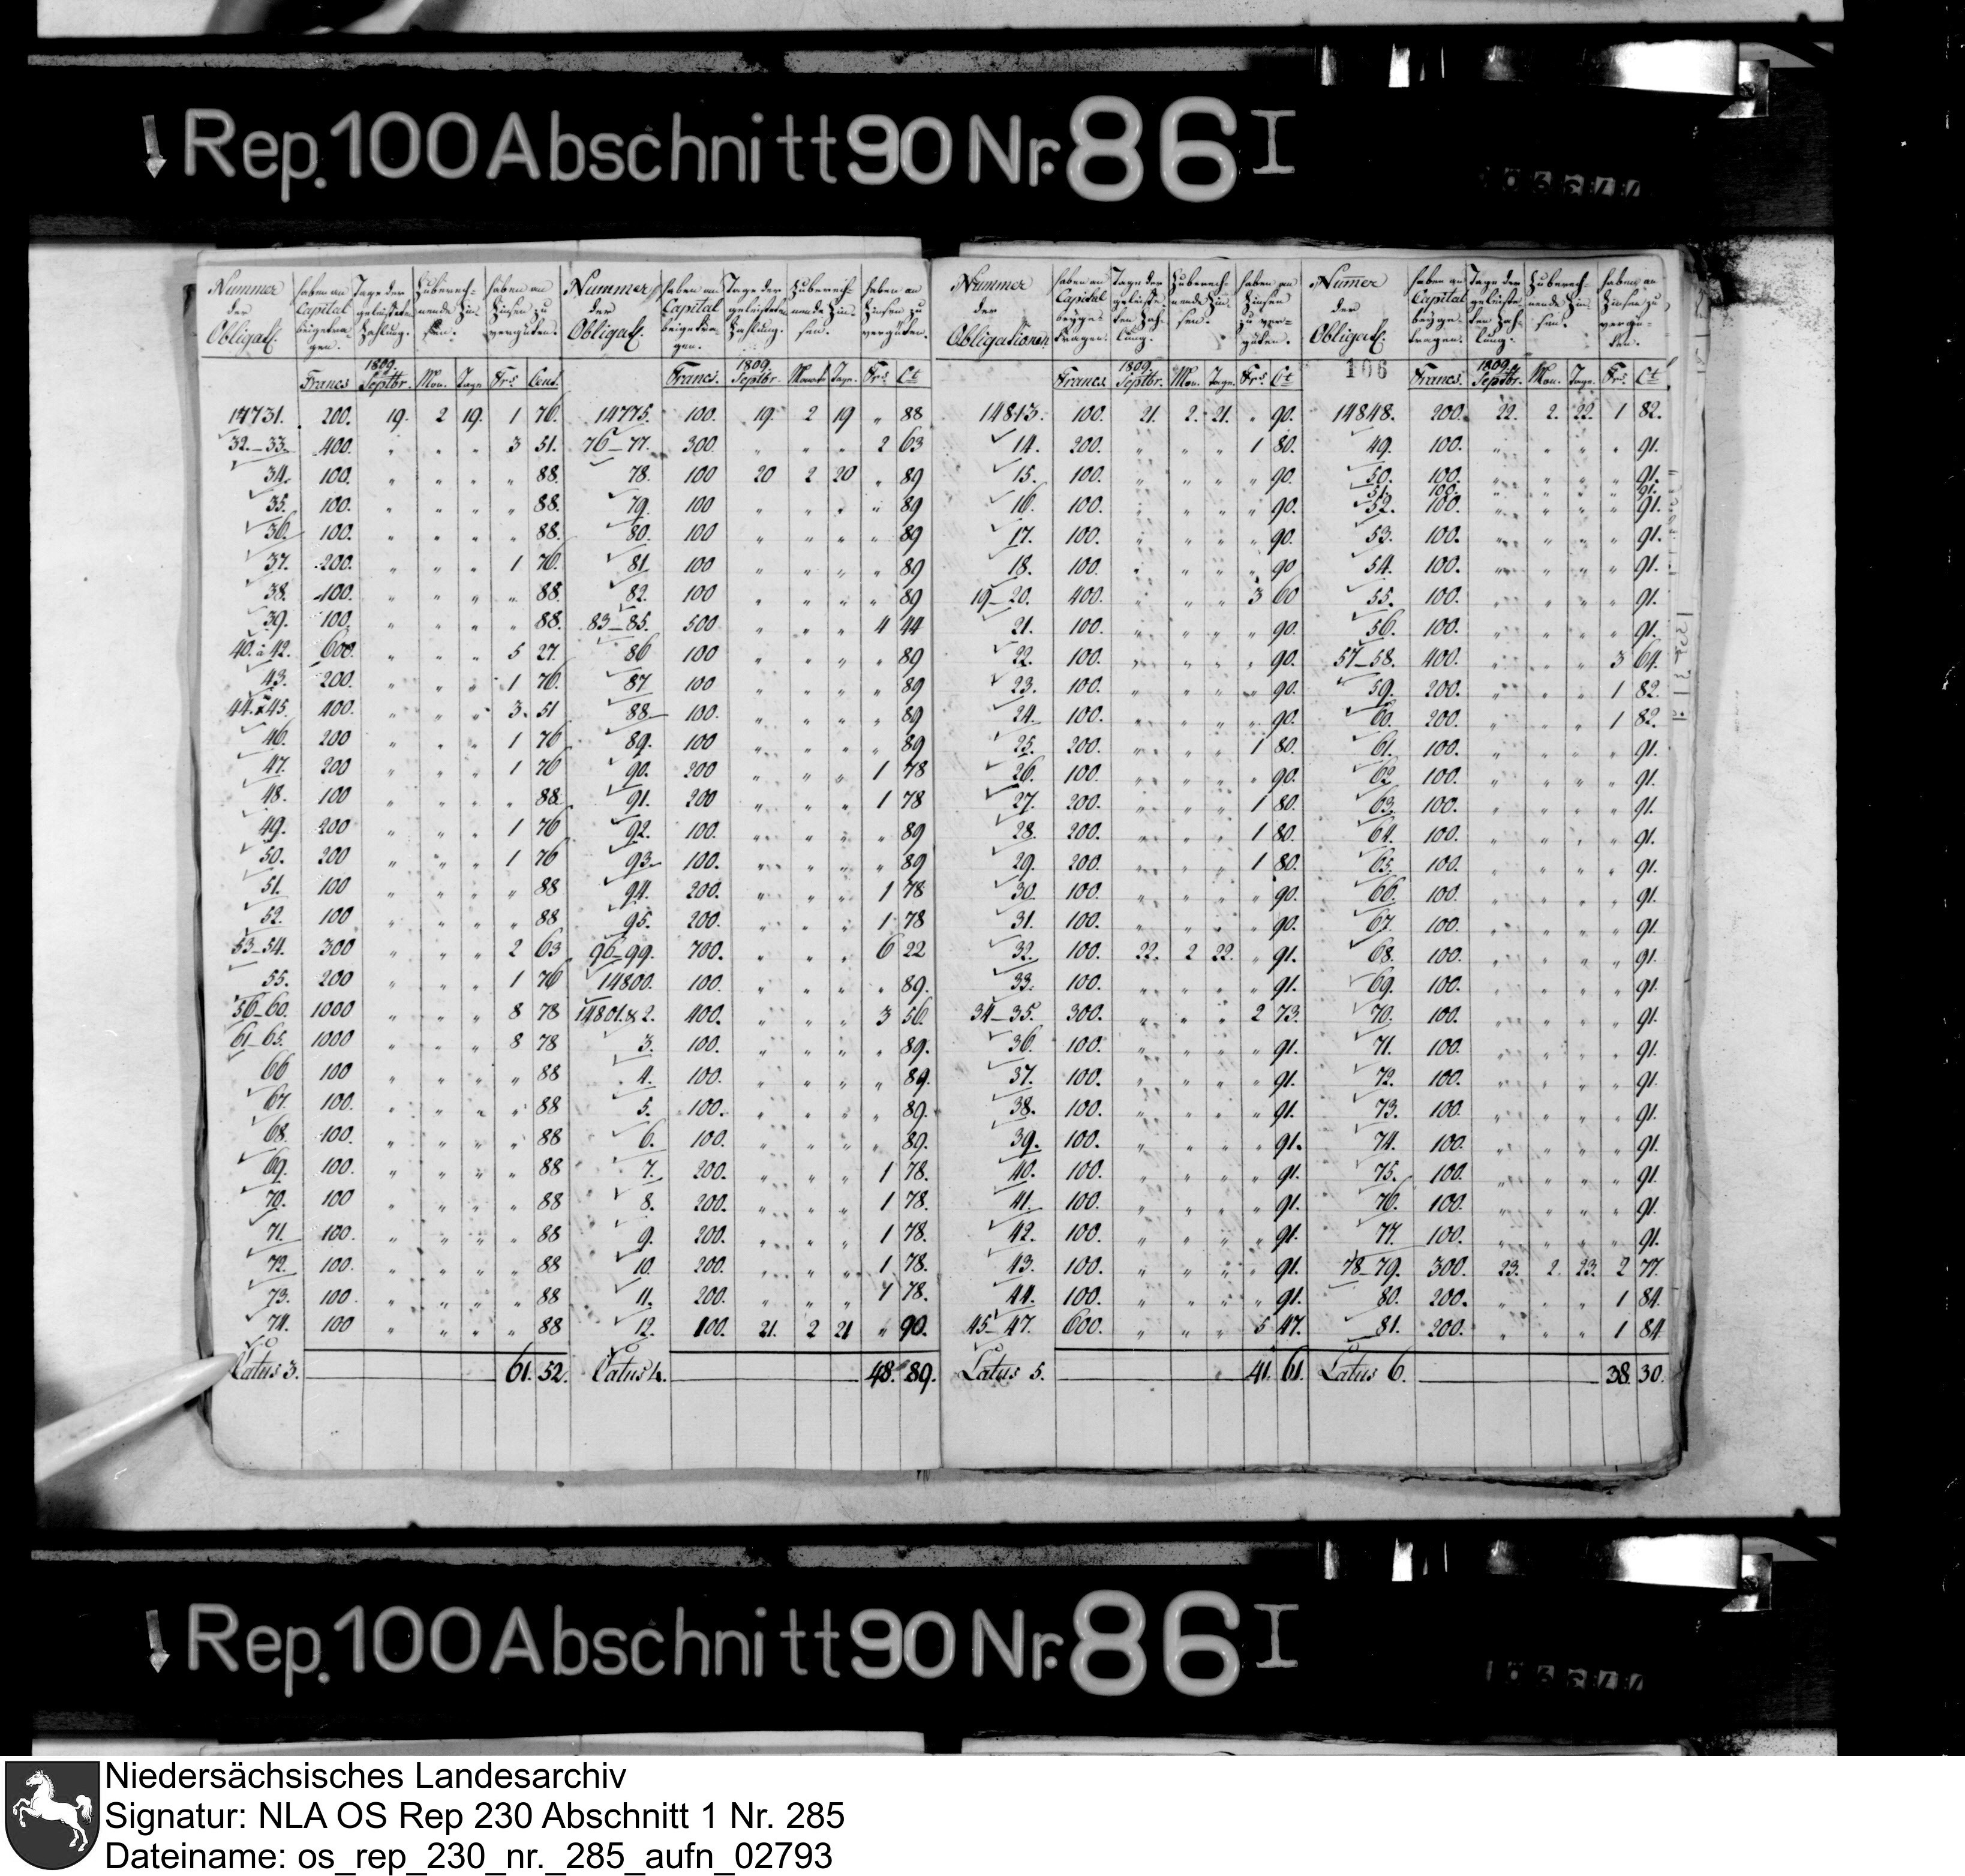 Rep. 100 Abschnitt 90 Nr. 86 I
Nummer der Obligat.
haben an Capital beigetragen.
Tage der geleisteten Zahlung.
Zuberechnende Zinsen.
haben an Zinsen zu vergüten.
Francs 1809. Septbr. Mon. Tage Frs. Cent.
14731. 200. 19. 2 19. 1 76.
32.–33. 400. " " " 3 51.
34. 100. " " " " 88.
35. 100. " " " " 88.
36. 100. " " " " 88.
37. 200. " " " 1 76.
38. 100. " " " " 88.
39. 100. " " " " 88.
40. à 42. 600. " " " 5 27.
43. 200. " " " 1 76.
44. & 45. 400. " " " 3. 51
46. 200 " " " 1 76
47. 200 " " " 1 76
48. 100 " " " " 88.
49. 200 " " " 1 76
50. 200 " " " 1 76
51. 100 " " " " 88
52. 100 " " " " 88
53–54. 300 " " " 2 63
55. 200 " " " 1 76
56–60. 1000 " " " 8 78
61–65. 1000 " " " 8 78
66 100 " " " " 88
67. 100. " " " " 88
68. 100. " " " " 88
69. 100. " " " " 88
70. 100 " " " " 88
71. 100. " " " " 88
72. 100. " " " " 88
73. 100. " " " " 88
74. 100 " " " " 88
Latus 3. 61. 52.
Nummer der Obligat.
haben an Capital beigetragen.
Tage der geleisteten Zahlung.
Zuberechnende Zinsen.
haben an Zinsen zu vergüten.
Francs. 1809. Septbr. Monate Tage. Frs. Ct
14775. 100. 19. 2 19 " 88
76–77. 300. " " " 2 63
78. 100 20 2 20 " 89
79. 100 " " " " 89
80. 100 " " " " 89
81. 100 " " " " 89
82. 100 " " " " 89
83–85. 500 " " " 4 44
86 100 " " " " 89
87 100 " " " " 89
88 100. " " " " 89
89. 100 " " " " 89
90. 200 " " " 1 78
91. 200 " " " 1 78
92. 100. " " " " 89
93. 100. " " " " 89
94. 200. " " " 1 78
95. 200. " " " 1 78
96–99. 700. " " " 6 22
14800. 100. " " " " 89.
14801. & 2. 400. " " " 3 56.
3. 100. " " " " 89.
4. 100. " " " " 89.
5. 100. " " " " 89.
6. 100. " " " " 89.
7. 200. " " " 1 78.
8. 200. " " " 1 78.
9. 200. " " " 1 78.
10. 200. " " " 1 78.
11. 200. " " " 1 78.
12. 100. 21. 2 21 " 90.
Latus 4. 48. 89.
Nummer der Obligationen.
haben an Capital beygetragen.
Tage der geleisteten Zahlung.
Zuberechnende Zinsen.
haben an Zinsen zu vergüten.
Francs. 1809. Septbr. Mon. Tage. Frs. Ct
14813. 100. 21. 2. 21. " 90.
14. 200. " " " 1 80.
15. 100. " " " " 90.
16. 100. " " " " 90.
17. 100. " " " " 90.
18. 100. " " " " 90
19–20. 400. " " " 3 60
21. 100. " " " " 90.
22. 100. " " " " 90.
23. 100. " " " " 90.
24. 100. " " " " 90.
25. 200. " " " 1 80.
26. 100. " " " " 90.
27. 200. " " " 1 80.
28. 200. " " " 1 80.
29. 200. " " " 1 80.
30. 100. " " " " 90.
31. 100. " " " " 90.
32. 100. 22. 2 22. " 91.
33. 100. " " " " 91.
34–35. 300. " " " 2 73.
36. 100. " " " " 91.
37. 100. " " " " 91.
38. 100. " " " " 91.
39. 100. " " " " 91.
40. 100. " " " " 91.
41. 100. " " " " 91.
42. 100. " " " " 91.
43. 100. " " " " 91.
44. 100. " " " " 91.
45–47. 600. " " " 5 47.
Latus 5. 41. 61.
Numer der Obligat.
haben an Capital beygetragen.
Tage der geleisteten Zahlung.
Zuberechnende Zinsen.
haben an Zinsen zu vergüten.
106
Francs. 1809. Septbr. Mon. Tage. Frs. Ct
14848. 200. 22. 2. 22. 1 82.
49. 100. " " " " 91.
50. 100. " " " " 91.
51. 100. " " " " 91.
52. 100. " " " " 91.
53. 100. " " " " 91.
54. 100. " " " " 91.
55. 100. " " " " 91.
56. 100. " " " " 91.
57–58. 400. " " " 3 64.
59. 200. " " " 1 82.
60. 200. " " " 1 82.
61. 100. " " " " 91.
62. 100. " " " " 91.
63. 100. " " " " 91.
64. 100. " " " " 91.
65. 100. " " " " 91.
66. 100. " " " " 91.
67. 100. " " " " 91.
68. 100. " " " " 91.
69. 100. " " " " 91.
70. 100. " " " " 91.
71. 100. " " " " 91.
72. 100. " " " " 91.
73. 100. " " " " 91.
74. 100. " " " " 91.
75. 100. " " " " 91.
76. 100. " " " " 91.
77. 100. " " " " 91.
78–79. 300. 23. 2. 23. 2 77.
80. 200. " " " 1 84.
81. 200. " " " 1 84.
Latus 6. 38. 30.
Rep. 100 Abschnitt 90 Nr. 86 I
Niedersächsisches Landesarchiv
Signatur: NLA OS Rep 230 Abschnitt 1 Nr. 285
Dateiname: os_rep_230_nr._285_aufn_02793